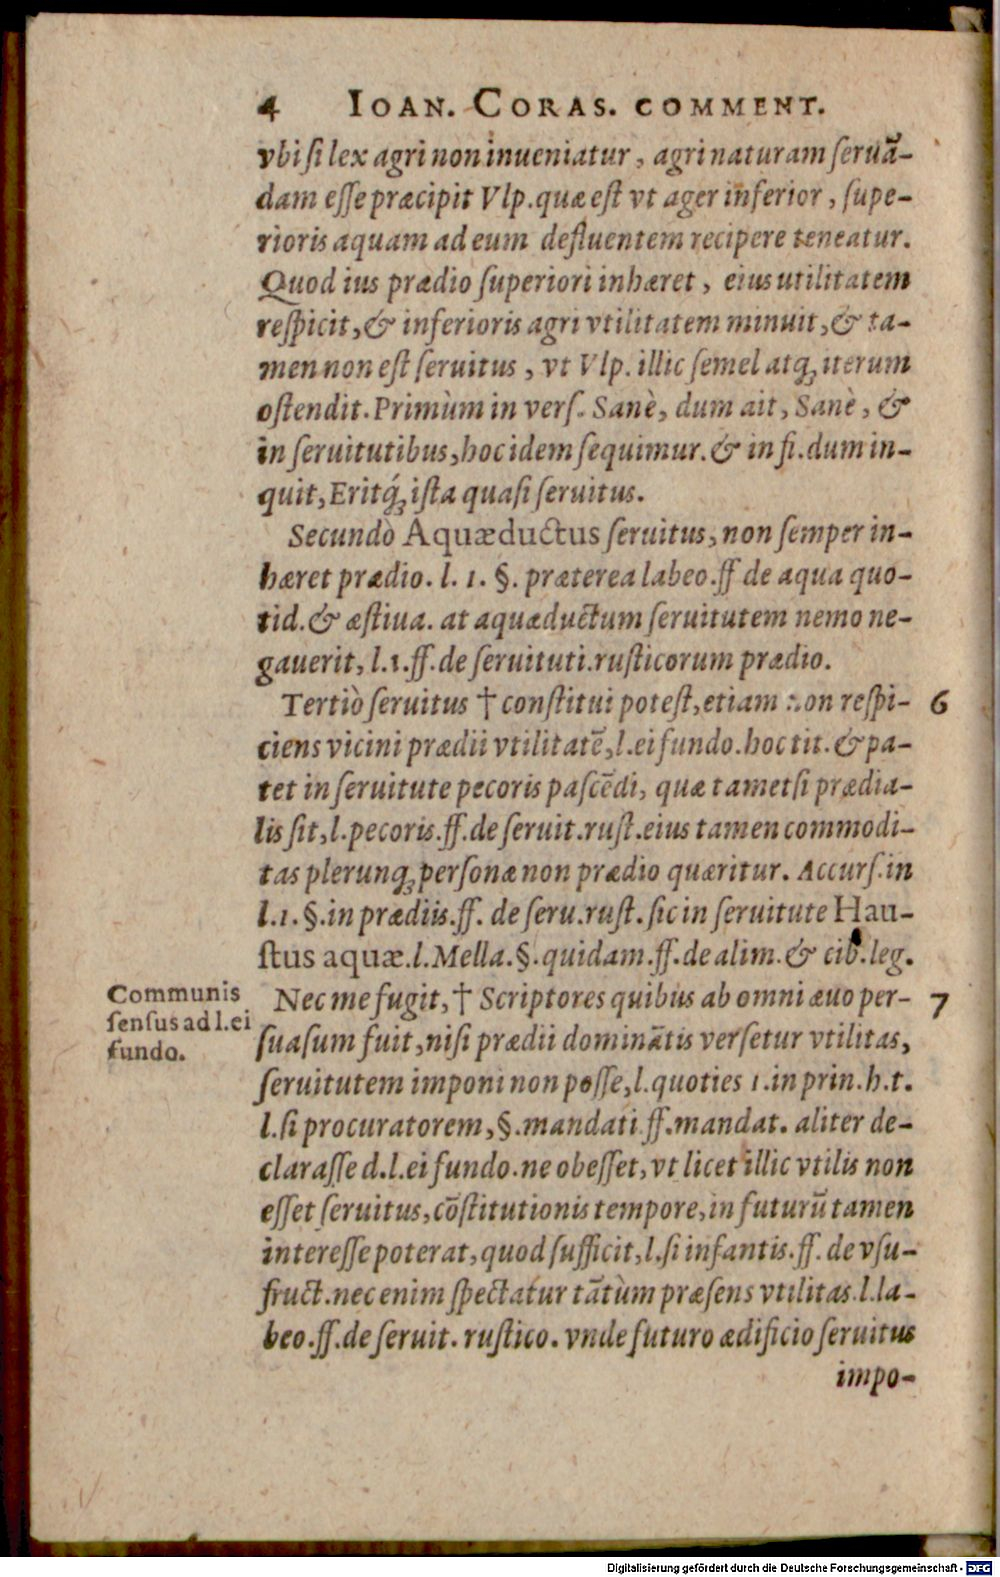 4 IOAN. CORAS. COMMENT.
vbi ſi lex agri non inueniatur, agri naturam ſeruā-
dam eſſe præcipit Vlp. quæ eſt vt ager inferior, ſupe-
rioris aquam ad eum defluentem recipere teneatur.
Quod ius prædio ſuperiori inhæret, eius utilitatem
reſpicit, & inferioris agri vtilitatem minuit, & ta-
men non eſt ſeruitus, vt Vlp. illic ſemel atq́; iterum
oſtendit. Primùm in verſ. Sanè, dum ait, Sanè, &
in ſeruitutibus, hoc idem ſequimur. & in fi. dum in-
quit, Eritq́; iſta quaſi ſeruitus.
Secundò Aquæductus ſeruitus, non ſemper in-
hæret prædio. l. 1. §. præterea labeo. ff de aqua quo-
tid. & æſtiua. at aquæductum ſeruitutem nemo ne-
gauerit, l. 1. ff. de ſeruituti. ruſticorum prædio.
Tertiò ſeruitus † conſtitui poteſt, etiam non reſpi- 6
ciens vicini prædii vtilitatē, l. ei fundo. hoc tit. & pa-
tet in ſeruitute pecoris paſcēdi, quæ tametſi prædia-
lis ſit, l. pecoris. ff. de ſeruit. ruſt. eius tamen commodi-
tas plerunq; perſonæ non prædio quæritur. Accurſ. in
l. 1. §. in prædiis. ff. de ſeru. ruſt. ſic in ſeruitute Hau-
ſtus aquæ. l. Mella. §. quidam. ff. de alim. & cib. leg.
Communis
ſenſus ad l. ei
fundo.
Nec me fugit, † Scriptores quibus ab omni æuo per- 7
ſuaſum fuit, niſi prædii dominātis verſetur vtilitas,
ſeruitutem imponi non poſſe, l. quoties 1. in prin. h. t.
l. ſi procuratorem, §. mandati. ff. mandat. aliter de-
claraſſe d. l. ei fundo. ne obeſſet, vt licet illic vtilis non
eſſet ſeruitus, cōſtitutionis tempore, in futurū tamen
intereſſe poterat, quod ſufficit, l. ſi infantis. ff. de vſu-
fruct. nec enim ſpectatur tātùm præſens vtilitas. l. la-
beo. ff. de ſeruit. ruſtico. vnde futuro ædificio ſeruitus
impo-
Digitalisierung gefördert durch die Deutsche Forschungsgemeinschaft - DFG